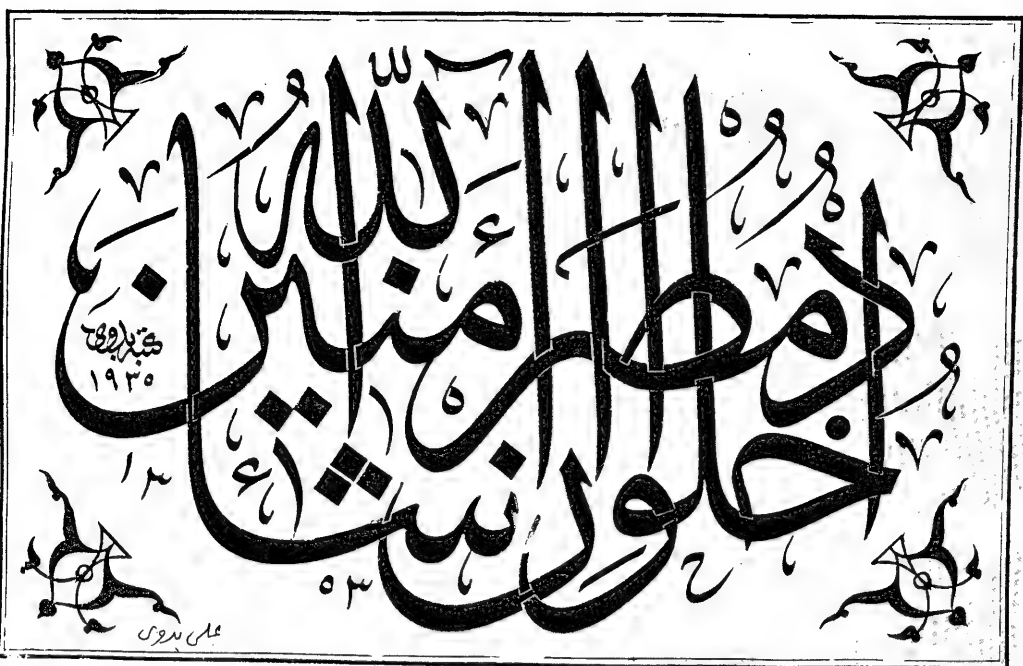 ادخلوا مصر إن شاء الله ءامنين
كتبه بدوى
١٩٣٥
١٣
٥٣
على بدوى